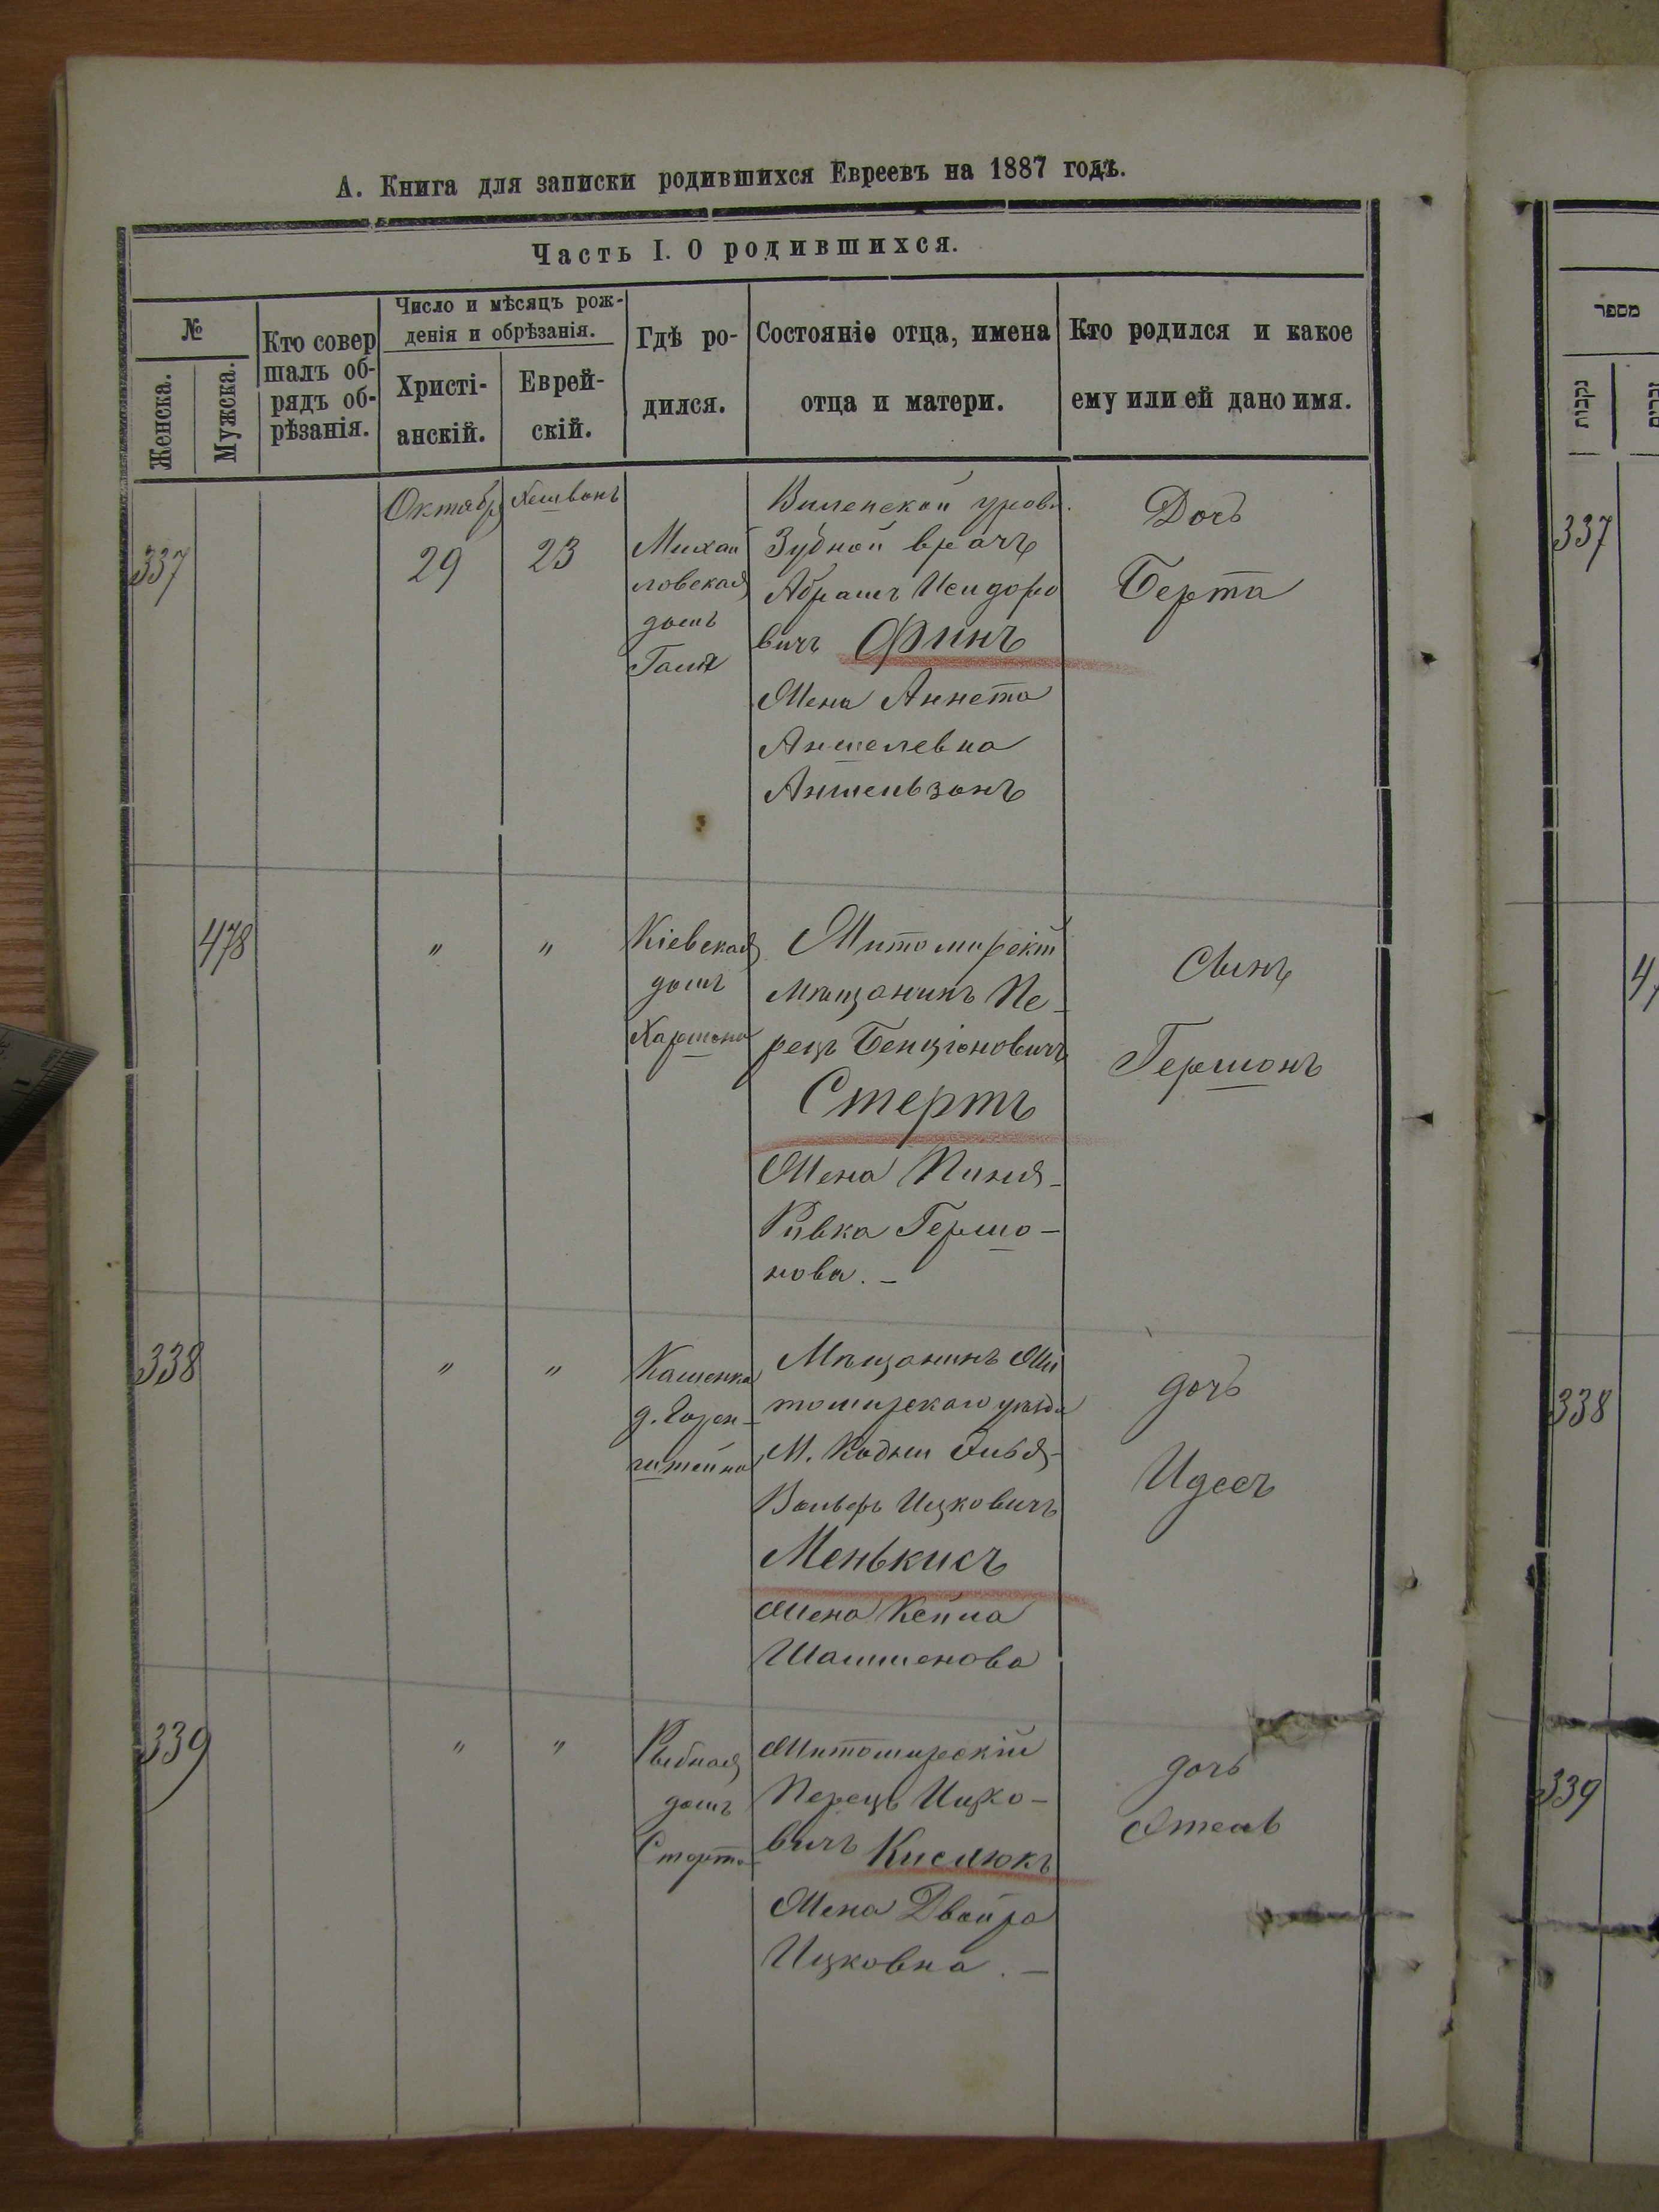 А. Книга для записки родившихся Евреевъ на 1887 годъ.
Часть I. О родившихся.
№
Женска.
Мужска.
Кто совер
шалъ об-
рядъ об-
рѣзанія.
Число и мѣсяцъ рож-
денія и обрѣзанія.
Христі-
анскій.
Еврей-
скій.
Гдѣ ро-
дился.
Состояніе отца, имена
отца и матери.
Кто родился и какое
ему или ей дано имя.
337
Октябр
29
Хешвонъ
23
Михай
ловская
домъ
Виленской
Зубной врачъ
Абрамъ Исидоро
вичъ Финъ
Жена Аннета
Аншелевна
Аншельзонъ
Дочь
Берта
478
"
"
Кіевская
домъ
Житомирскій
Мѣщанинъ Пе-
рецъ Бенціоновичъ
Стертъ
Жена Пиня-
Ривка Гершо-
нова. -
Сынъ
Гершонъ
338
"
"
Мѣщанинъ Жи
томирскаго уѣзда
М. Кодни Элья-
Вольфъ Ицковичъ
Менькисъ
Жена Кейла
дочь
Идесъ
339
"
"
Рыбная
домъ
Стерта
Житомирскій
Перецъ Ицко-
вичъ Кислюкъ
Жена Двойра
Ицковна. -
дочь
Этель
מספר
נקבות
337
338
339